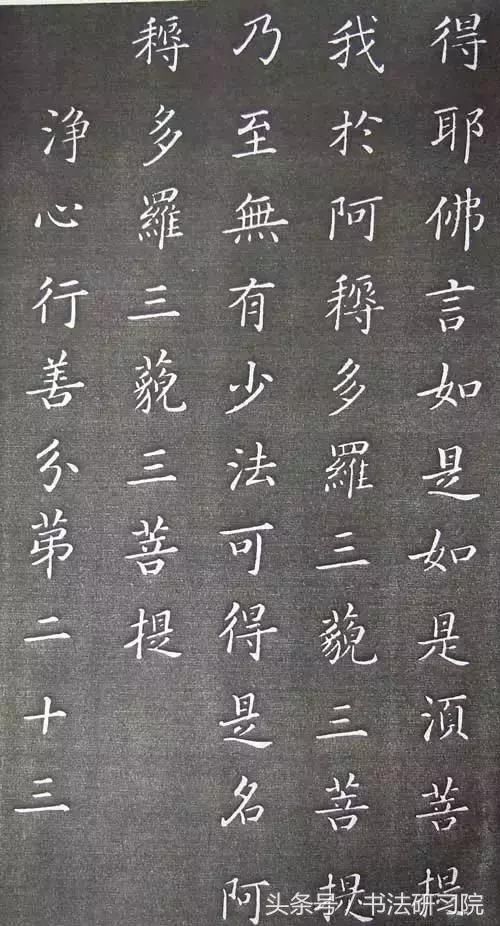 得耶佛言如是如是須菩提
我於阿耨多羅三藐三菩提
乃至無有少法可得是名阿
耨多羅三藐三菩提
淨心行善分第二十三
头条号/书法研习院